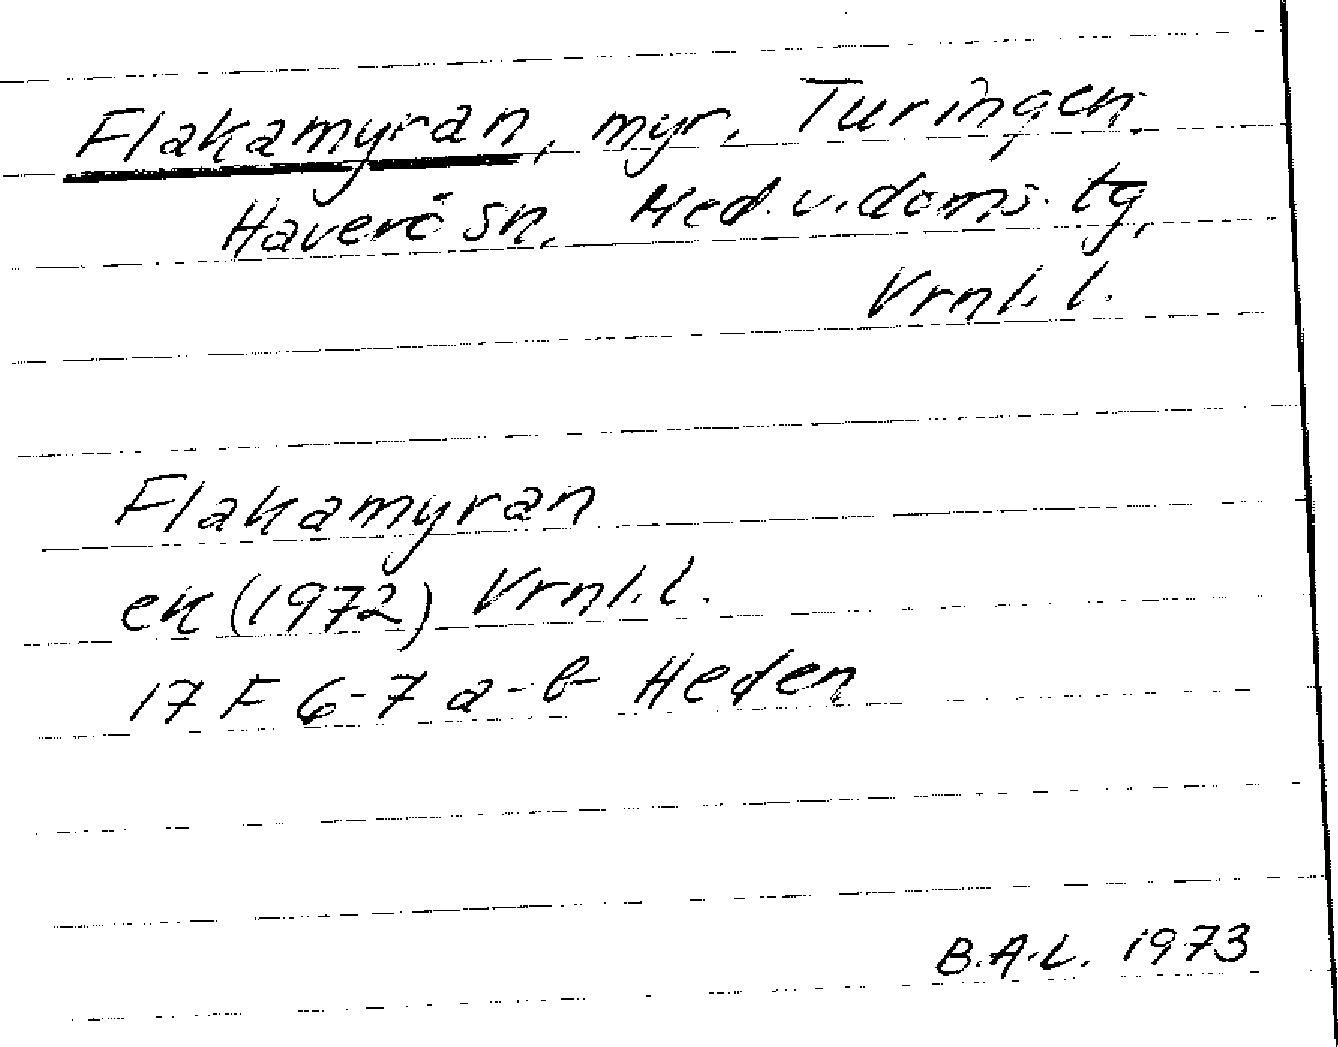 Flakamyran, myr, Turingen
Haverö sn, Med.v.doms.tg,
Vrnl.l.
Flakamyran
ek (1972) Vrnl.l.
17 F 6-7 a-b Heden
B.A.L. 1973